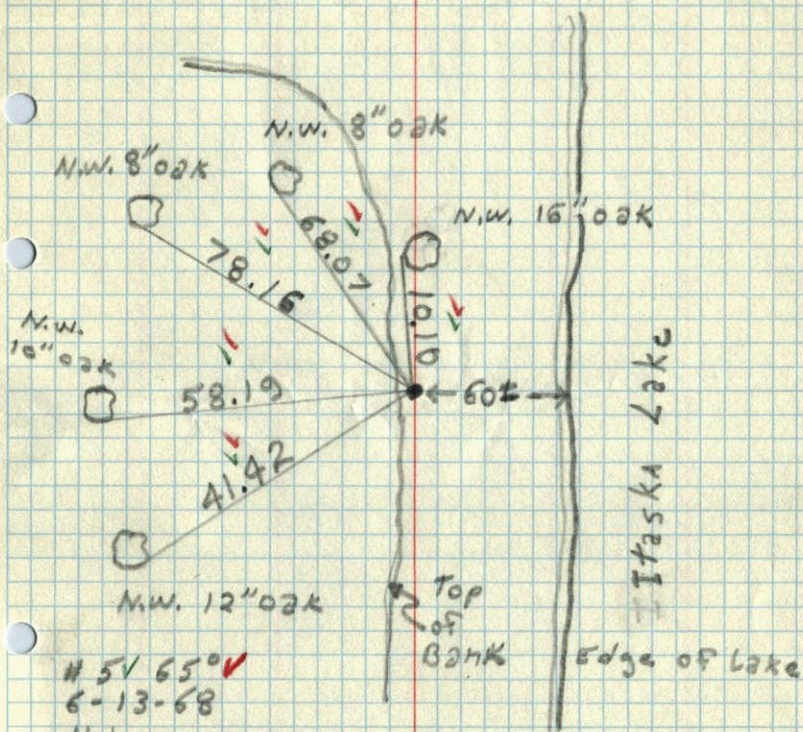 N.W. 8" oak
N.W. 8" oak
N.W. 16" oak
68.07
78.16
10.10
N.W.
10" oak
58.19
60±
41.42
Itaska Lake
N.W. 12" oak
Top
of
Bank
Edge of Lake
# 5✓ 65°✓
6-13-68